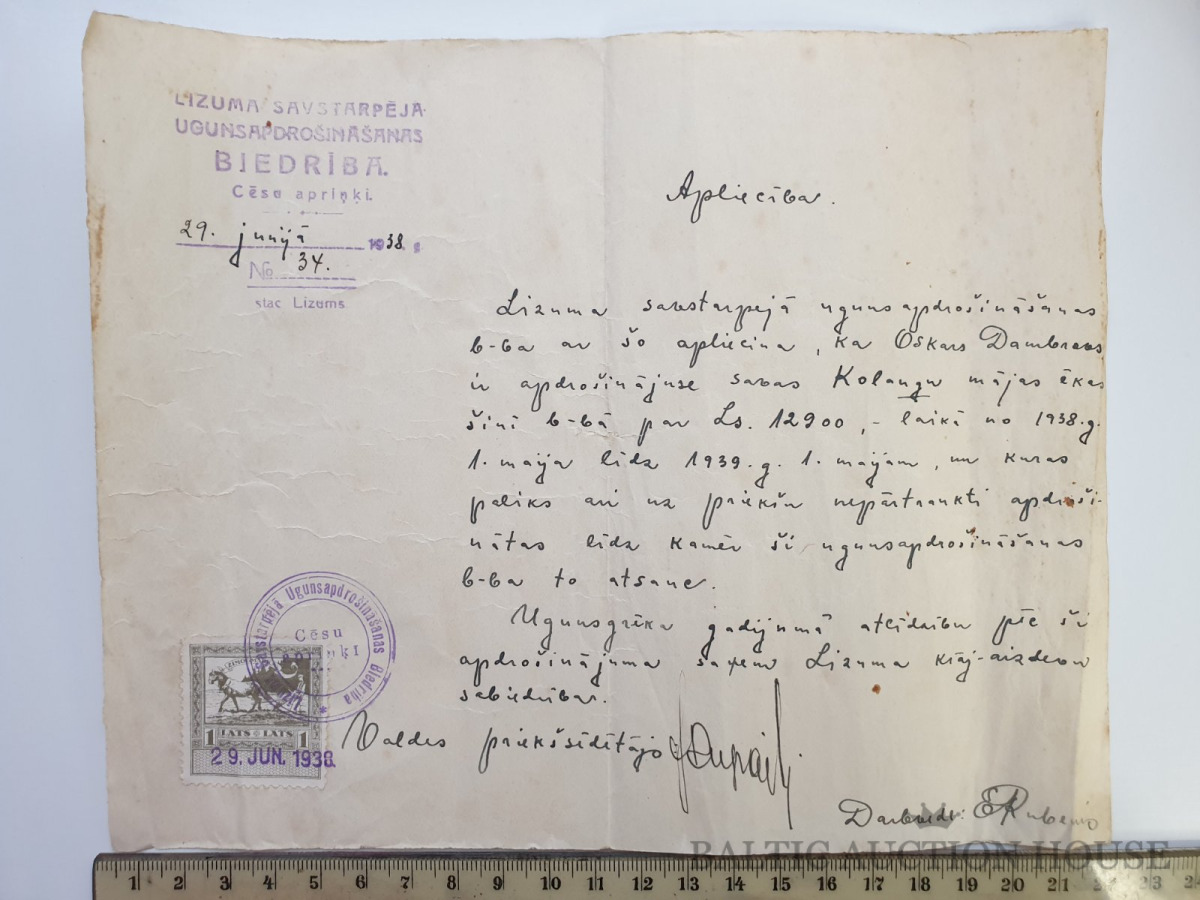 LIZUMA SAVSTARPĒJĀ
UGUNSAPDROŠINĀŠANAS
BIEDRĪBA.
Cēsu apriņķī.
29. junijā 1938. g.
No 34.
stac Lizums
Apliecība.
Lizuma savstarpejā ugunsapdrošināšanas
b-ba ar šo apliecina, ka Oskars Dambravs
ir apdrošinājuse savas Kolangu mājas ēkas
šinī b-bā par Ls. 12900,- laikā no 1938.g.
1. maija līdz 1939.g. 1. maijam, un kuras
paliks arī uz priekšu nepārtraukti apdroši-
nātas līdz kamēr šī ugunsapdrošināšanas
b-ba to atsauc.
Ugunsgrēka gadijumā atlīdzību pēc šī
apdrošinājuma saņem Lizuma krāj-aizdevu
sabiedrība.
Valdes priekšsēdētājs
Darbvedis:
Savstarpējā Ugunsapdrošināšanas Biedrība
Cēsu
apriņķī
1 LATS LATS 1
29. JUN. 1938
BALTIC AUCTION HOUSE
1 2 3 4 5 6 7 8 9 10 11 12 13 14 15 16 17 18 19 20 21 22 23 24